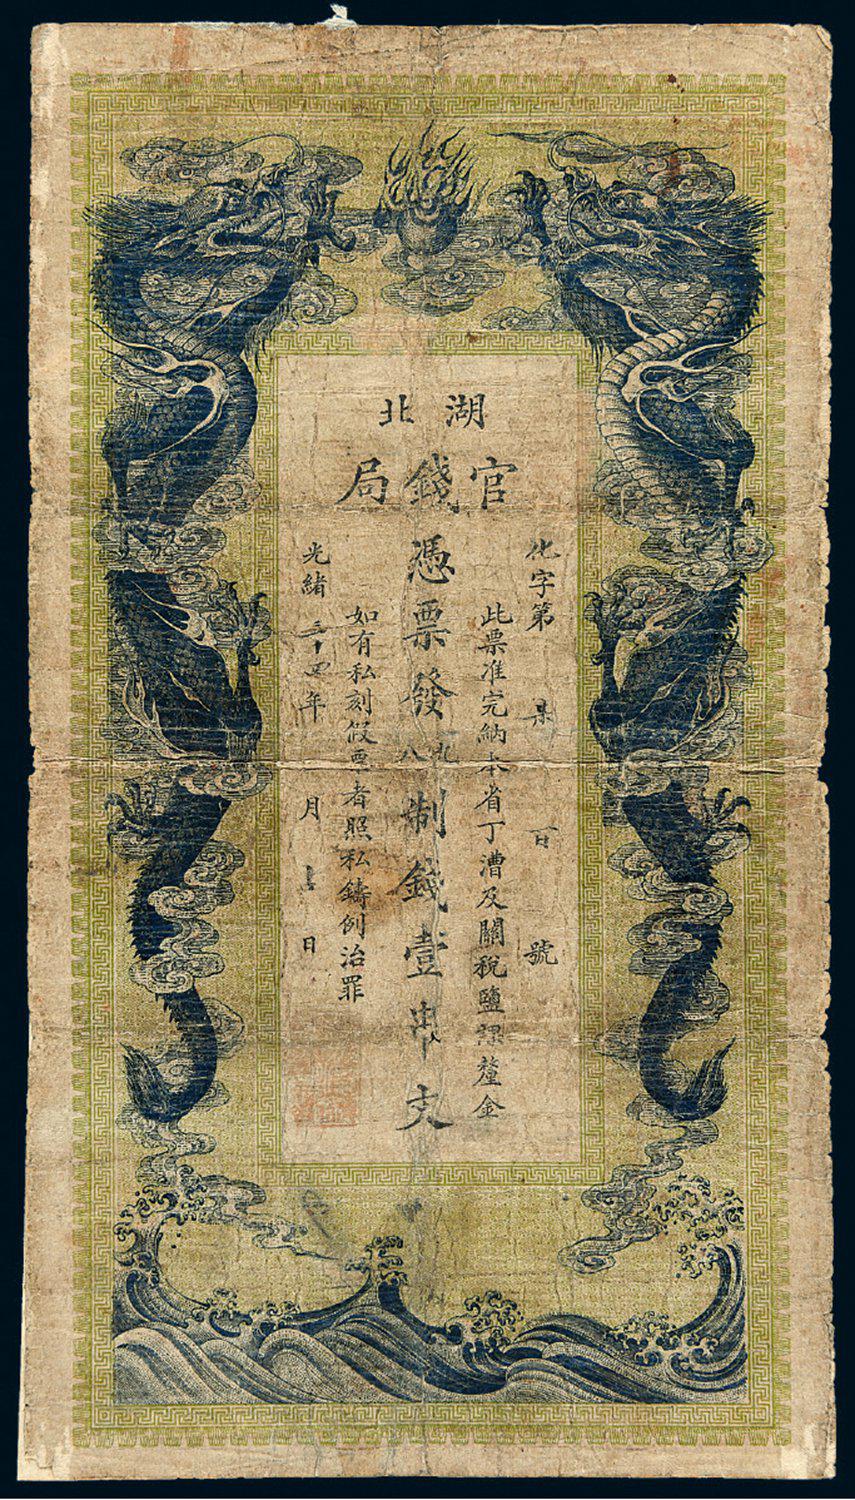 湖北
官錢局
化字第 百 號
此票准完納本省丁漕及關稅鹽課釐金
憑票發九八制錢壹串文
如有私刻假票者照私鑄例治罪
光緒三十四年 月 日